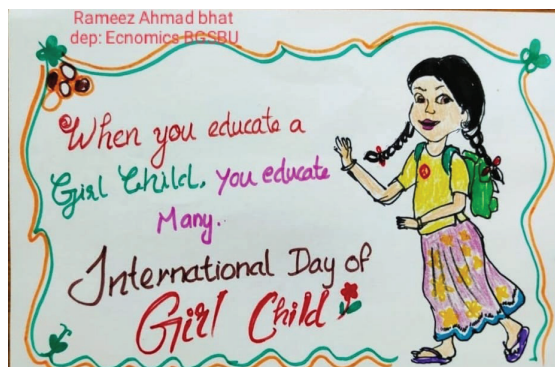 Rameez Ahmad bhat
dep: Ecnomics BGSBU
When you educate a
Girl Child, you educate
Many.
International Day of
Girl Child